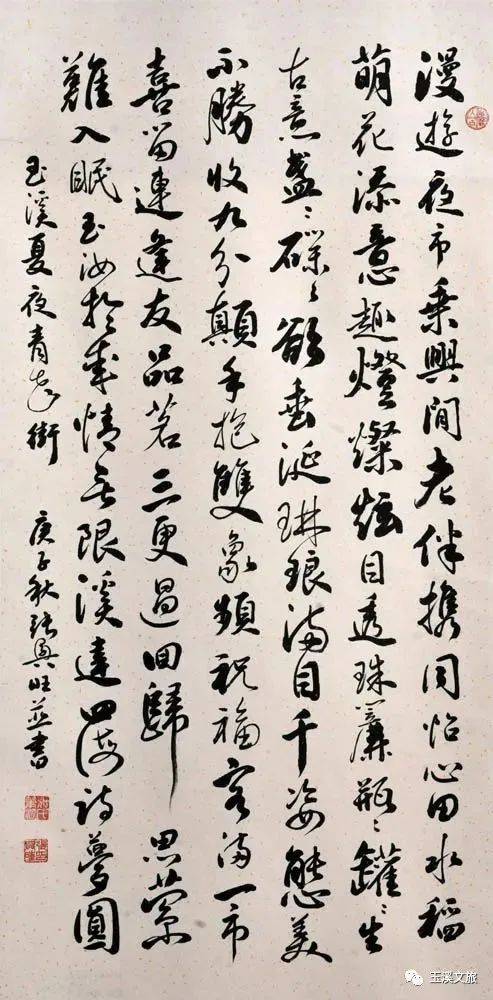 漫遊夜市乘興間老伴攜同怡心田水稻
萌花添意趣燈燦炫目透珠簾瓶〻罐〻生
古意盞〻碟〻欲垂涎琳琅滿目千姿態美
不勝收九分顛手抱雙象頻祝福客滿一市
喜留連逢友品茗三更過回歸思縈
難入眠玉汝於成情無限溪達四海詩夢圓
玉溪夏夜青花街
庚子秋張興旺並書
玉溪文旅